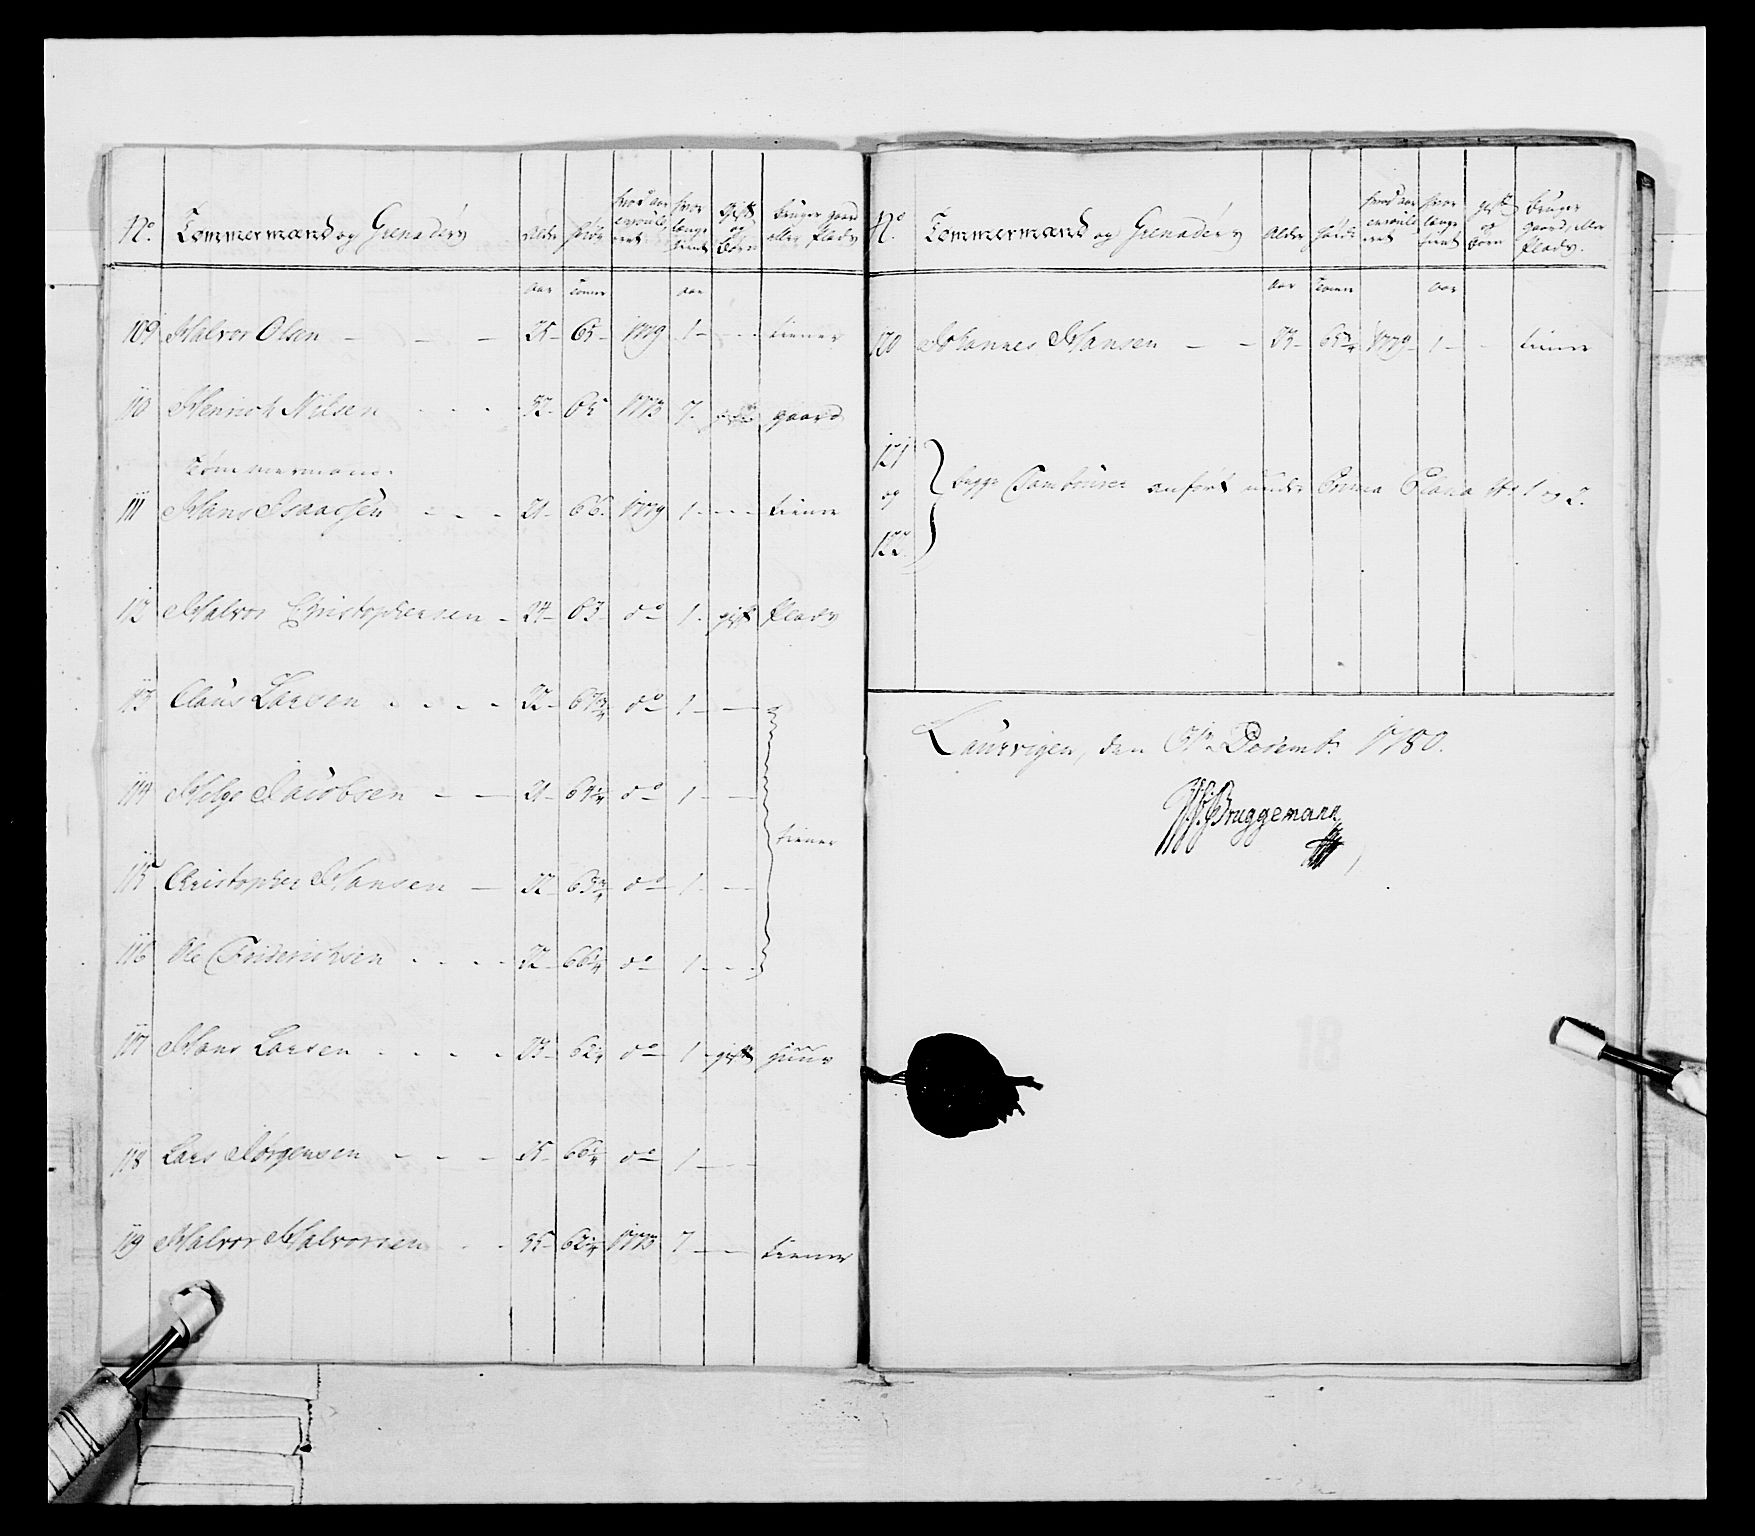 No. Tömmermænd og Grenadérs Alder Höide hvad aar enroulleret hvor længe tient Gift og Börn bruger gaard eller Plads
aar Tomer aar
109 Halvor Olsen – – – 25– 65– 1779 1– – – tiener
110 Henrich Nilsen – – – 32– 65 1773 7– gift gaard
Tömmermand
111 Hans Isaacsen – – – 21– 66– 1779 1– – – tiener
112 Halvor Christophersen – 24– 63– do– 1– gift Plads
113 Claus Larsen – – – – 22– do– 1– –
114 Helge Jacobsen – – 21– do– 1 –
tiener
115 Christopher Hansen – 22– do– 1– –
116 Ole Friderichsen – – – – 22– 66¼ do– 1– – –
117 Hans Larsen – – – – 23– 62¼ do– 1– gift huus
118 Lars Jörgensen – – – 25– do– 1– – –
119 Halvor Halvorsen – – 35– 1773 7 – – tiener
No. Tömmermænd og Grenadérs Alder Höide hvad aar enroulleret hvor længe tient gift og Börn bruger gaard eller Plads.
aar Tomer aar
120 Johannes Hansen – – 23– 1779– 1– – tiener
121
og begge Tambourer anfört under Prima Plana No 1 og 2.
122
Laurvigen, den Decembr 1780.
Bruggemann